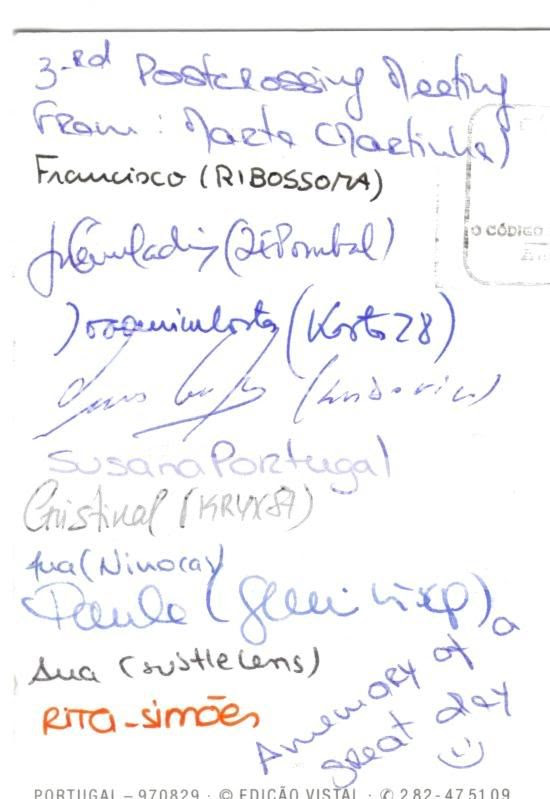 3-rd Postcrossing Meeting
From: Marta (Martinha)
Francisco (RIBOSSOMA)
O CÓDIGO
(ZÉPombal)
Joaquimcosta (Kosta28)
(Ludovicus)
SusanaPortugal
CristinaL (KRYX87)
Ana (Ninocay
Paula
Ana (subtlelens)
RITA-simões
A memory of a
great day
PORTUGAL – 970829 · © EDIÇÃO VISTAL · ✆ 282-475109